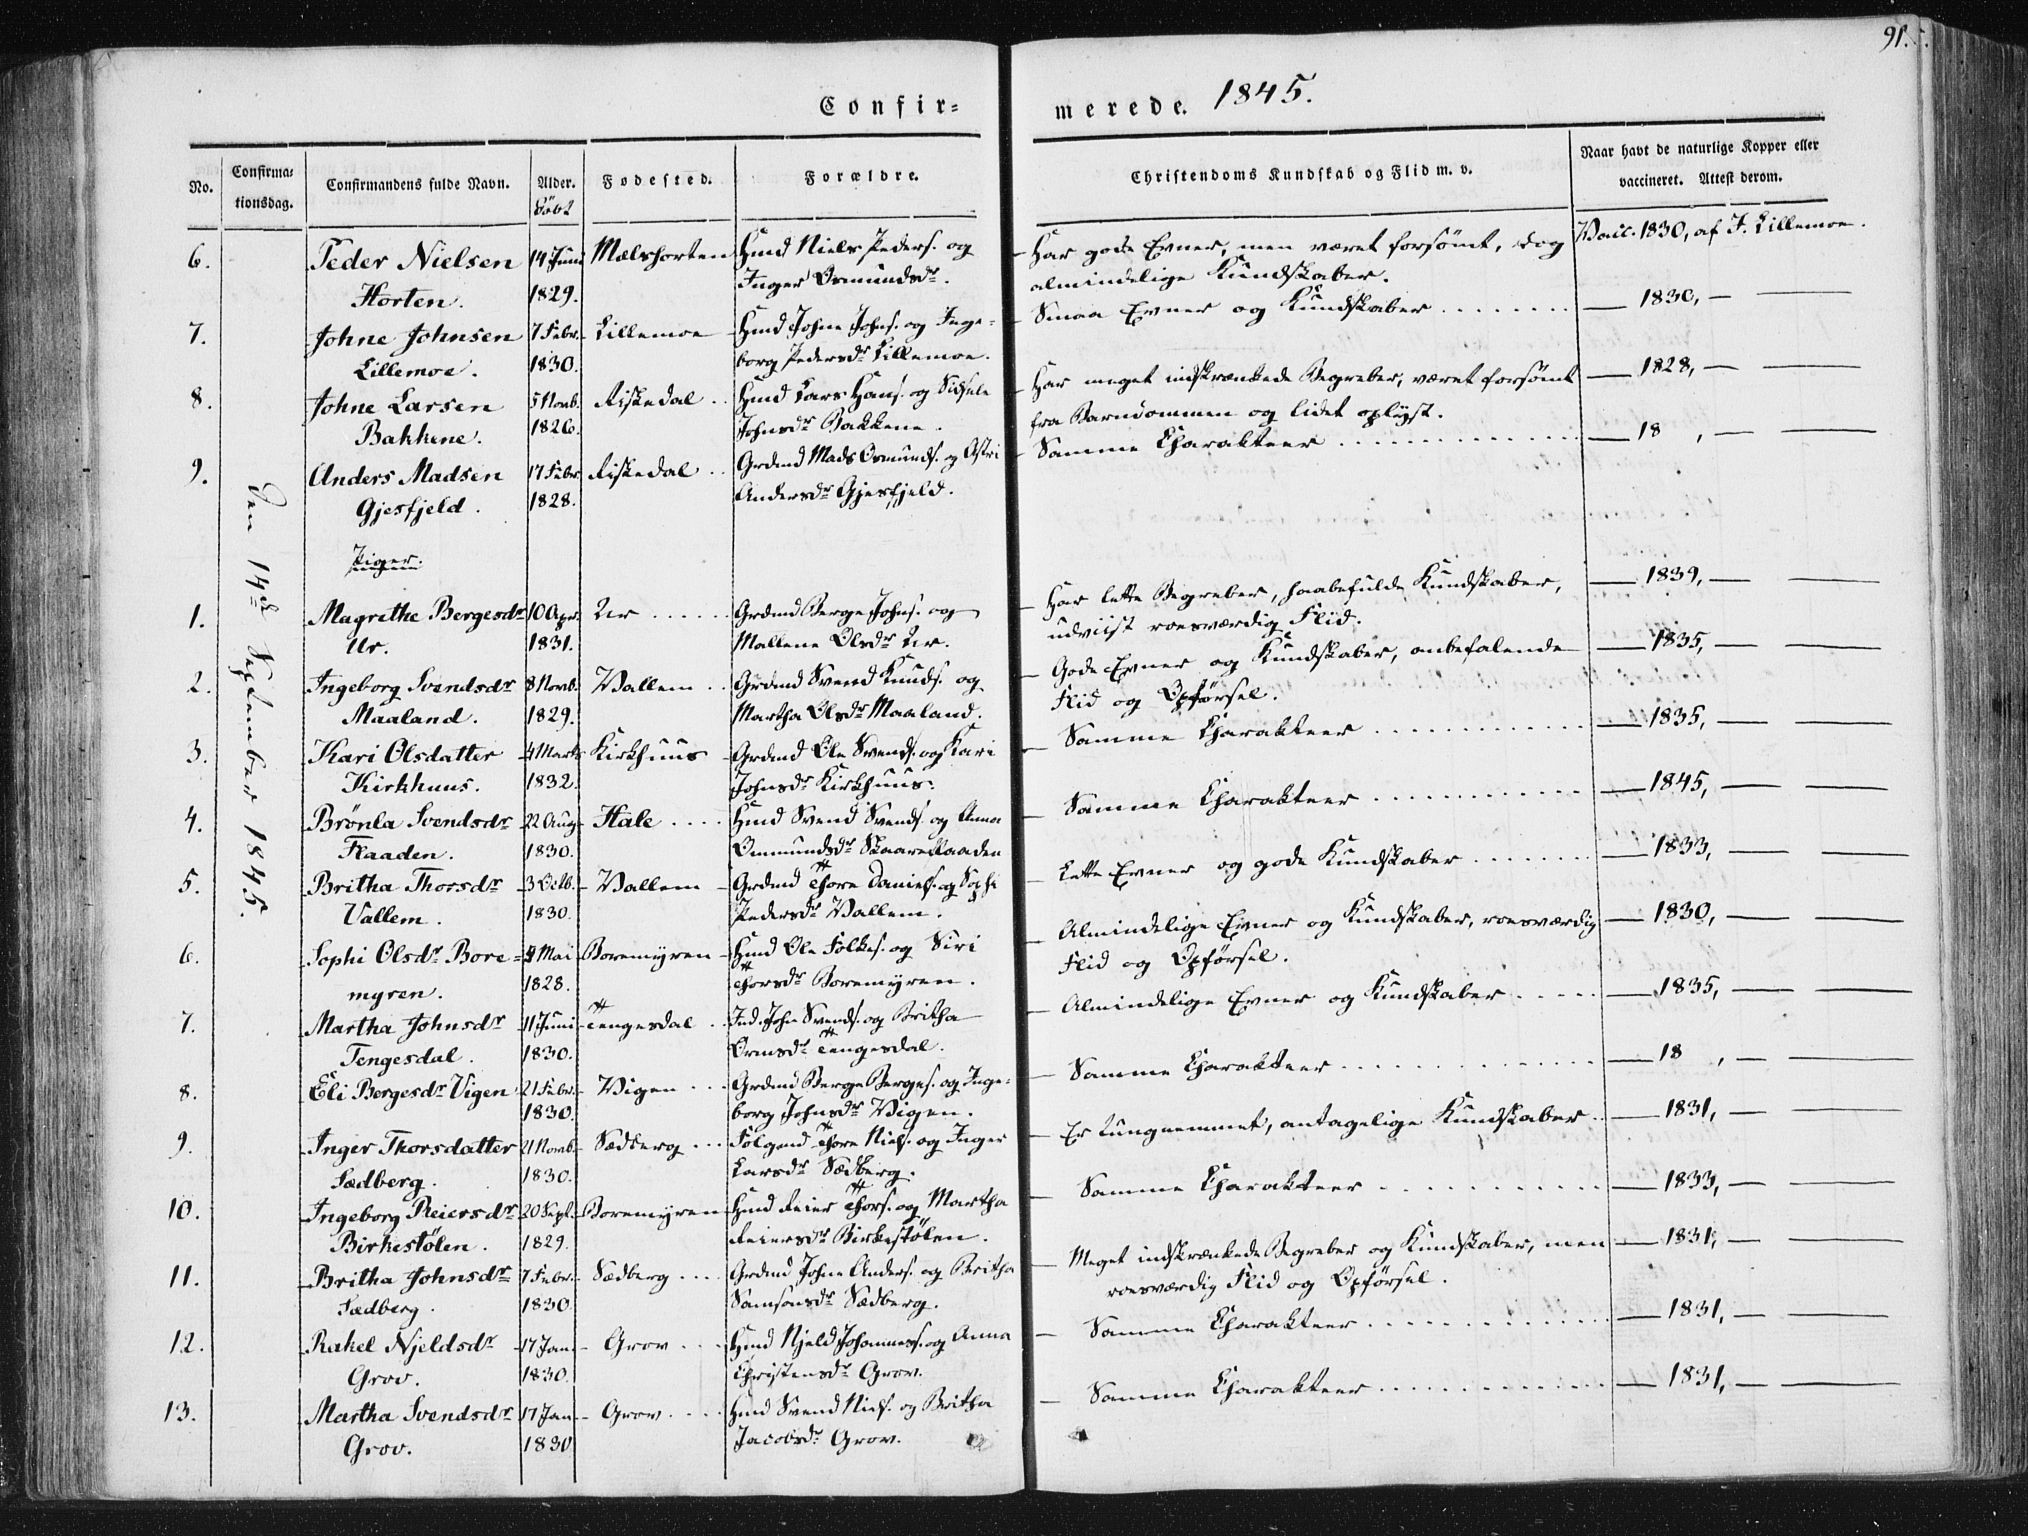 91.
Confir-
merede. 1845.
No.
Confirma-
tionsdag.
Confirmandens fulde Navn.
Alder.
Født
Fødested.
Forældre.
Christendoms Kundskab og Flid m. v.
Naar havt de naturlige Kopper eller
vaccineret. Attest derom.
Den 14d September 1845.
6. Peder Nielsen 14 Juni Mælshorten Hmd Niels Peders. og - Har gode Evner, men været forsømt, dog Vacc. 1830, af J. Lillemoe.
Horten. 1829. Inger Osmundsdr. almindelige Kundskaber.
7. Johne Johnsen 7 Febr. Lillemoe - Hmd Johne Johns. og Inge- - Smaa Evner og Kundskaber — 1830, — —
Lillemoe. 1830. borg Pedersdr Lillemoe.
8. Johne Larsen 5 Novb. Riskedal Hmd Lars Hans. og Sissele - Har meget indskrænkede Begreber, været forsømt — 1828, — —
Bakkene. 1826. Johnsdr Bakkene. fra Barndommen og lidet oplyst.
9. Anders Madsen 17 Febr. Riskedal Grdmd Mads Osmunds. og Astri - Samme Charakteer — 18 , — —
Gjesfjeld. 1828. Andersdr Gjesfjeld.
Piger.
1. Magrethe Bergesdr 10 Apr. Ur Grdmd Berge Johns. og - Har lette Begreber, haabefulde Kundskaber, — 1839, — —
Ur. 1831. Mallene Olsdr Ur. udviist roesværdig Flid.
2. Ingeborg Svendsdr 8 Novb. Vallem Grdmd Svend Knuds. og - Gode Evner og Kundskaber, anbefalende — 1835, — —
Maaland. 1829. Martha Olsdr Maaland. Flid og Opførsel.
3. Kari Olsdatter 4 Marts Kirkhuus - Grdmd Ole Svends. og Kari - Samme Charakteer — 1835, — —
Kirkhuus. 1832. Johnsdr Kirkhuus.
4. Brønla Svendsdr 22 Aug. Hale Hmd Svend Svends. og Anna - Samme Charakteer — 1845, — —
Flaaden. 1830. Ommundsdr Skaareflaaden
5. Britha Thorsdr 3 Octb. Vallem - Grdmd Thore Daniels. og Sophi - Lette Evner og gode Kundskaber — 1833, — —
Vallem. 1830. Pedersdr Vallem.
6. Sophi Olsdr Bore- 4 Mai Boremyren - Hmd Ole Folkes. og Siri - Almindelige Evner og Kundskaber, roesværdig — 1830, — —
myren. 1828. Thorsdr Boremyren. Flid og Opførsel.
7. Martha Johnsdr 11 Juni Tengesdal Ind. John Svends. og Britha - Almindelige Evner og Kundskaber — 1835, — —
Tengesdal. 1830. Ormsdr Tengesdal.
8. Eli Bergesdr Vigen 21 Febr. Vigen Grdmd Berge Berges. og Inge- - Samme Charakteer — 18 , — —
1830. borg Johnsdr Vigen.
9. Inger Thorsdatter 21 Novb. Sædberg Følgmd Thore Niels. og Inger - Er tungnemmet, antagelige Kundskaber — 1831, — —
Sædberg. 1830. Larsdr Sædberg.
10. Ingeborg Reiersdr 20 Sept. Boremyren Hmd Reier Thors. og Martha - Samme Charakteer — 1833, — —
Birkestølen. 1829. Reiersdr Birkestølen.
11. Britha Johnsdr 7 Febr. Sædberg Grdmd Johne Anders. og Britha - Meget indskrænkede Begreber og Kundskaber, men — 1831, — —
Sædberg. 1830. Samsonsdr Sædberg. roesværdig Flid og Opførsel.
12. Rakel Njeldsdr 17 Jan. Grov Hmd Njeld Johanness. og Anna - Samme Charakteer — 1831, — —
Grov. 1830. Christensdr Grov.
13. Martha Svendsdr 17 Jan. Grov Hmd Svend Niels. og Britha - Samme Charakteer — 1831, — —
Grov. 1830 Jacobsdr Grov.